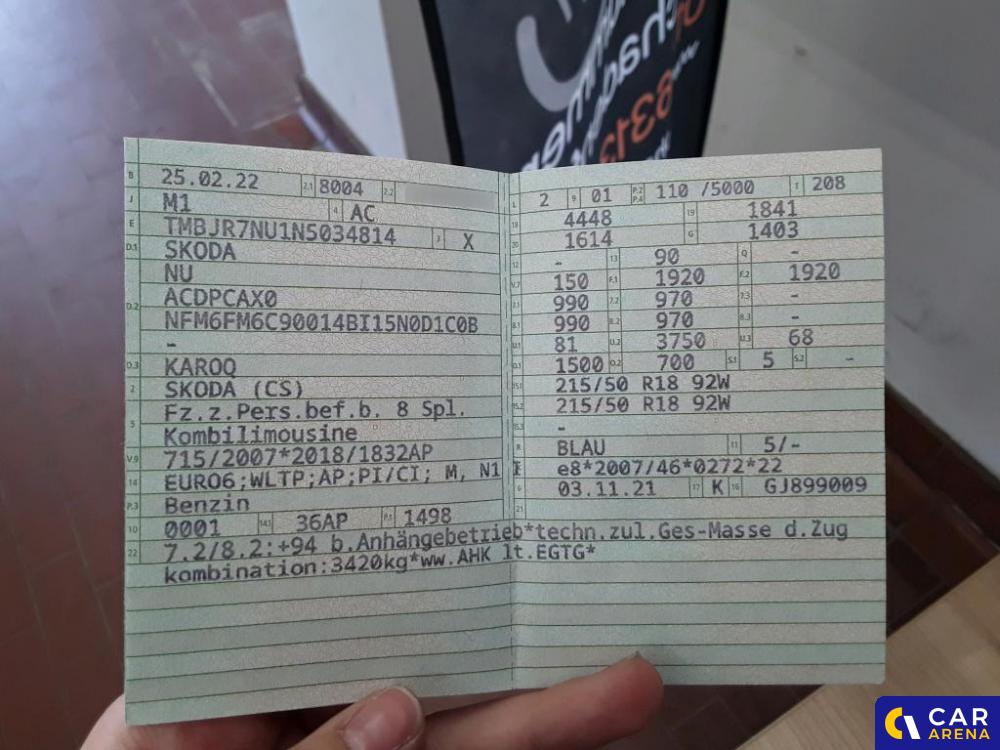 B 25.02.22 2.1 8004 2.2
J M1 4 AC
E TMBJR7NU1N5034814 3 X
D.1 SKODA
NU
D.2 ACDPCAX0
NFM6FM6C90014BI15N0D1C0B
-
D.3 KAROQ
2 SKODA (CS)
Fz.z.Pers.bef.b. 8 Spl.
5 Kombilimousine
V.9 715/2007*2018/1832AP
14 EURO6;WLTP;AP;PI/CI; M, N1 I
P.3 Benzin
10 0001 14.1 36AP P.1 1498
22 7.2/8.2:+94 b.Anhängebetrieb*techn.zul.Ges-Masse d.Zug
kombination:3420kg*ww.AHK lt.EGTG*
L 2 9 01 P.2 P.4 110 /5000 T 208
18 4448 19 1841
20 1614 G 1403
12 - 13 90 Q -
V.7 150 F.1 1920 F.2 1920
7.1 990 7.2 970 7.3 -
8.1 990 8.2 970 8.3 -
U.1 81 U.2 3750 U.3 68
O.1 1500 O.2 700 S.1 5 S.2 -
15.1 215/50 R18 92W
15.2 215/50 R18 92W
15.3 -
R BLAU 11 5/-
K e8*2007/46*0272*22
6 03.11.21 17 K 16 GJ899009
21
CAR
ARENA